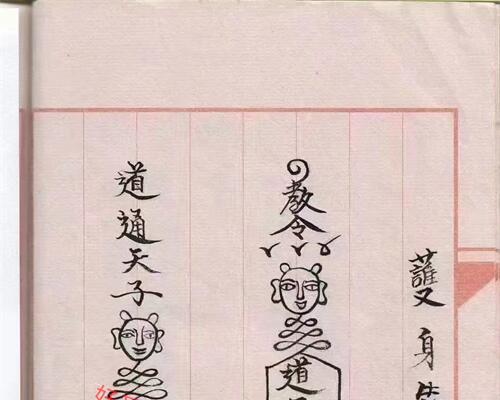 護身
敎令
道
道通天子